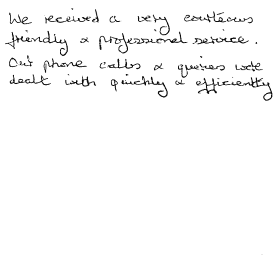 We received a very courteous
friendly & professional service.
Our phone calls & queries were
dealt with quickly & efficiently